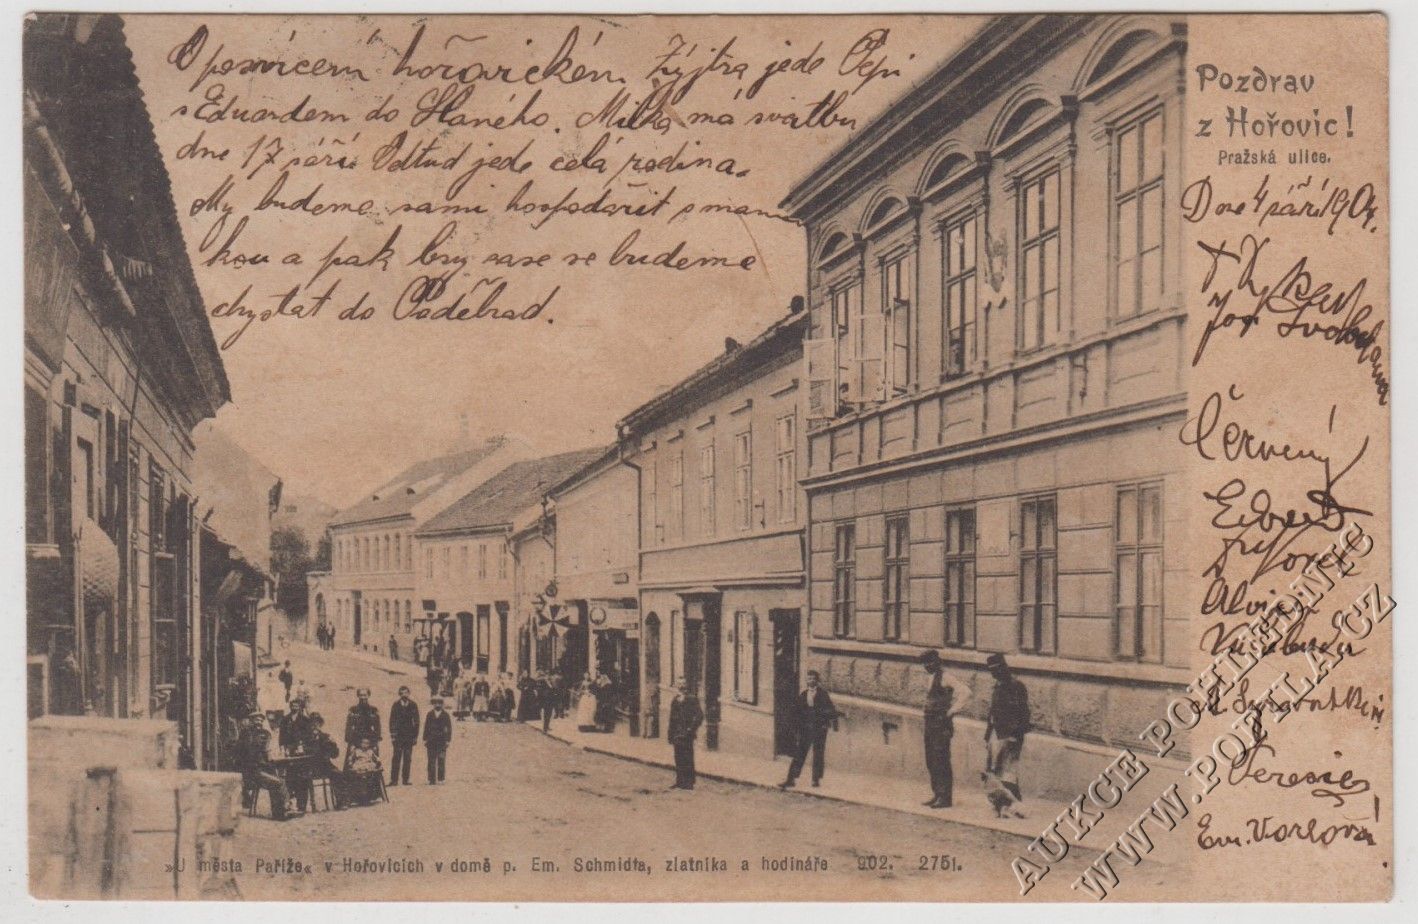 O posvícení hořovickém. Zýjtra jede Pepi
s Eduardem do Slaného. Milka má svatbu
dne 17 září. Odtud jede celá rodina.
My budeme sami hospodařit s mamin
kou a pak brzy zase se budeme
chystat do Poděbrad.
Pozdrav
z Hořovic!
Pražská ulice.
Dne 4 září 1904.
Jos Svoboda
Červený
Alois
Terezie
Em. Vorlová
»U města Paříže« v Hořovicích v domě p. Em. Schmidta, zlatníka a hodináře 902. 2751.
AUKCE POHLEDNIC
WWW.POFILA.CZ